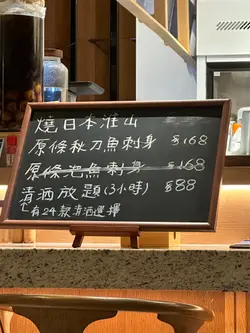 燒日本淮山
原條秋刀魚刺身 $168
原條池魚刺身 $168
清酒放題(3小時) $88
有24款清酒選擇